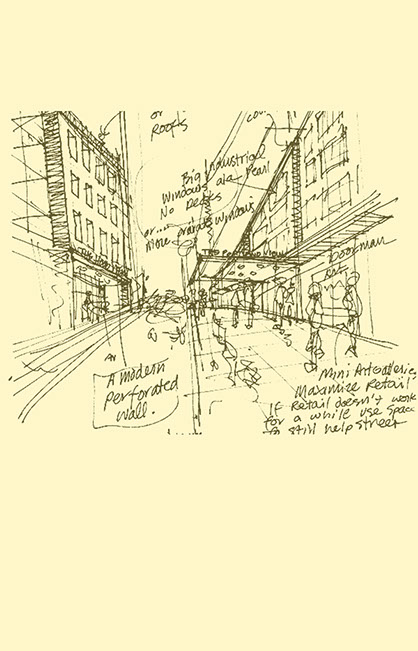 or
Roofs
Big Industrial
Windows ala Pearl
No Decks
or....
More windows
Doorman
A modern
perforated
wall.
Mini Art Galleries,
Maximize Retail
If Retail doesn't work
for a while use space
to still help street